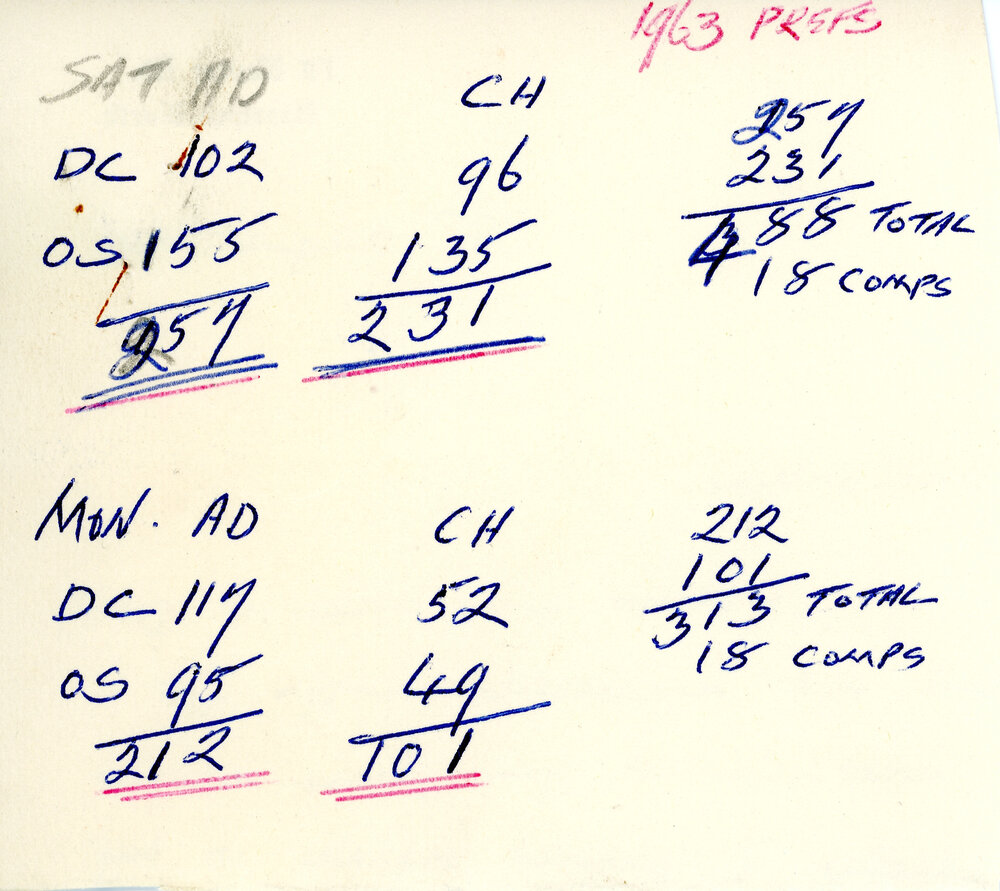 1963 PREFS
SAT AD CH
DC 102 96 257
OS 155 135 231
257 231 488 TOTAL
18 COMPS
MON. AD CH 212
DC 117 52 101
OS 95 49 313 TOTAL
212 101 18 COMPS